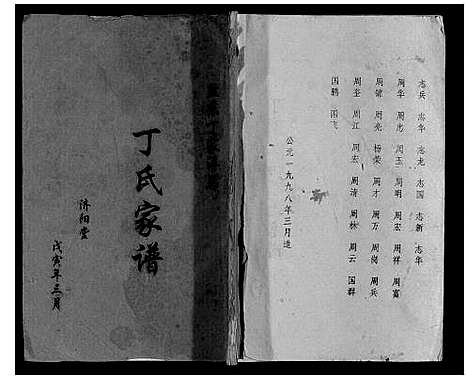 志兵 志华 志龙 志国 志新 志华
周华 周忠 周玉 周明 周宏 周祥 周富
周健 周亮 杨荣 周才 周万 周岗 周兵
周奎 周江 周宏 周清 周林 周云 国群
国鹏 国飞
公元一九九八年三月造
丁氏家谱
济阳堂
戊寅年三月